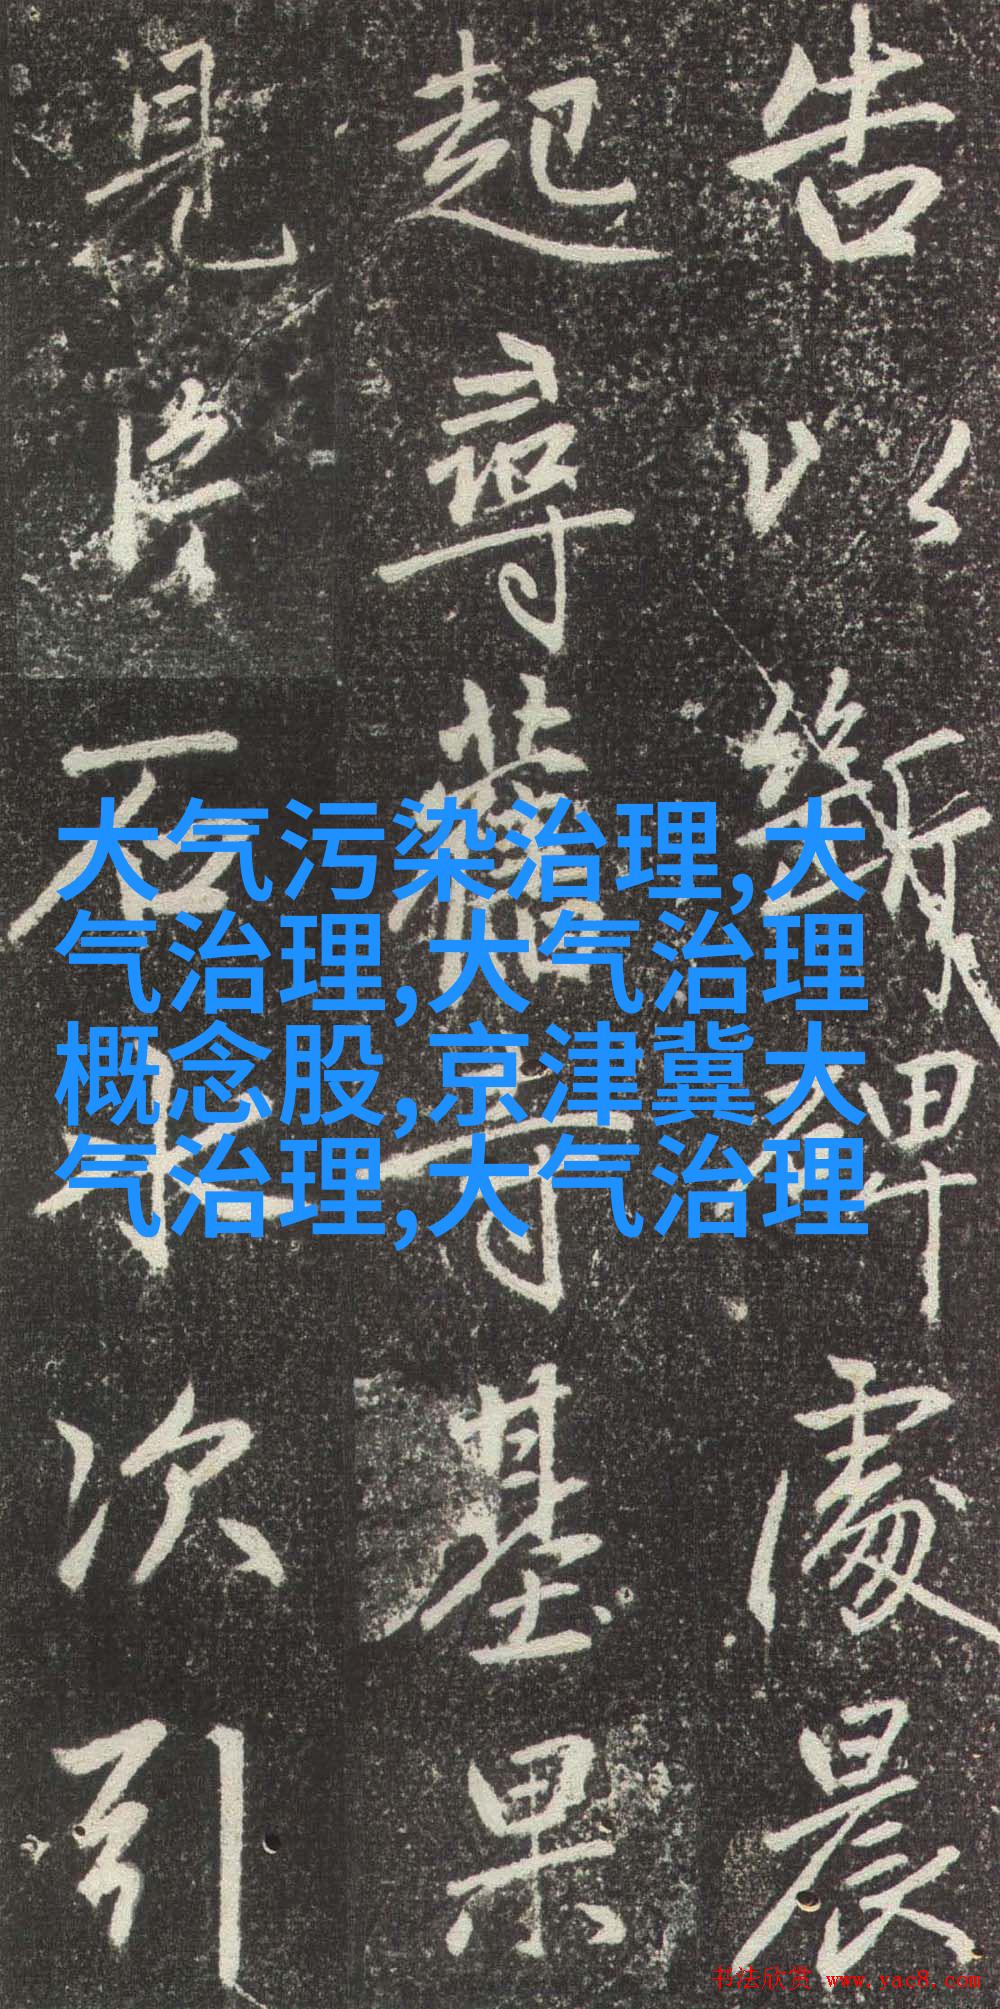 告以碑處晨
起尋舊寺基果
見片石次引
大气污染治理,大
气治理,大气治理
概念股,京津冀大
气治理,大气治理
书法欣赏 www.yac8.com